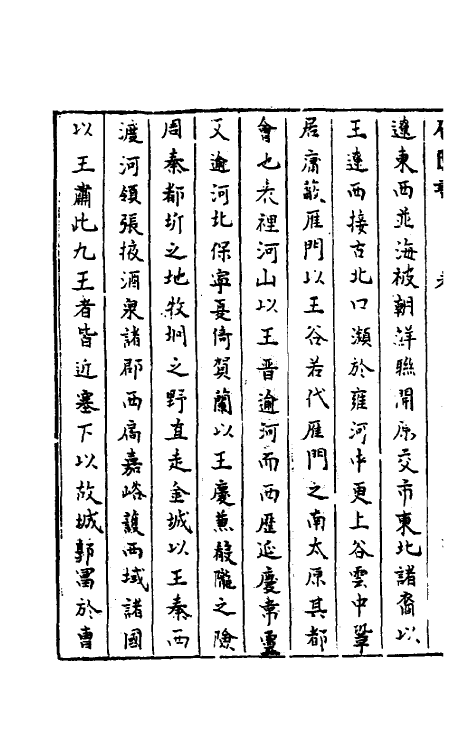 遼東西並海被朝鮮聯開原交市東北諸裔以
王遼西接古北口瀕於雍河中更上谷雲中鞏
居庸蔽雁門以王谷若代雁門之南太原其都
會也表裡河山以王晉逾河而西歷延慶韋靈
又逾河北保寧夏倚賀蘭以王慶兼殽隴之險
周秦都圻之地牧坰之野直走金城以王秦西
渡河領張掖酒泉諸郡西扃嘉峪護西域諸國
以王肅此九王者皆近塞下以故城郭畱於曹